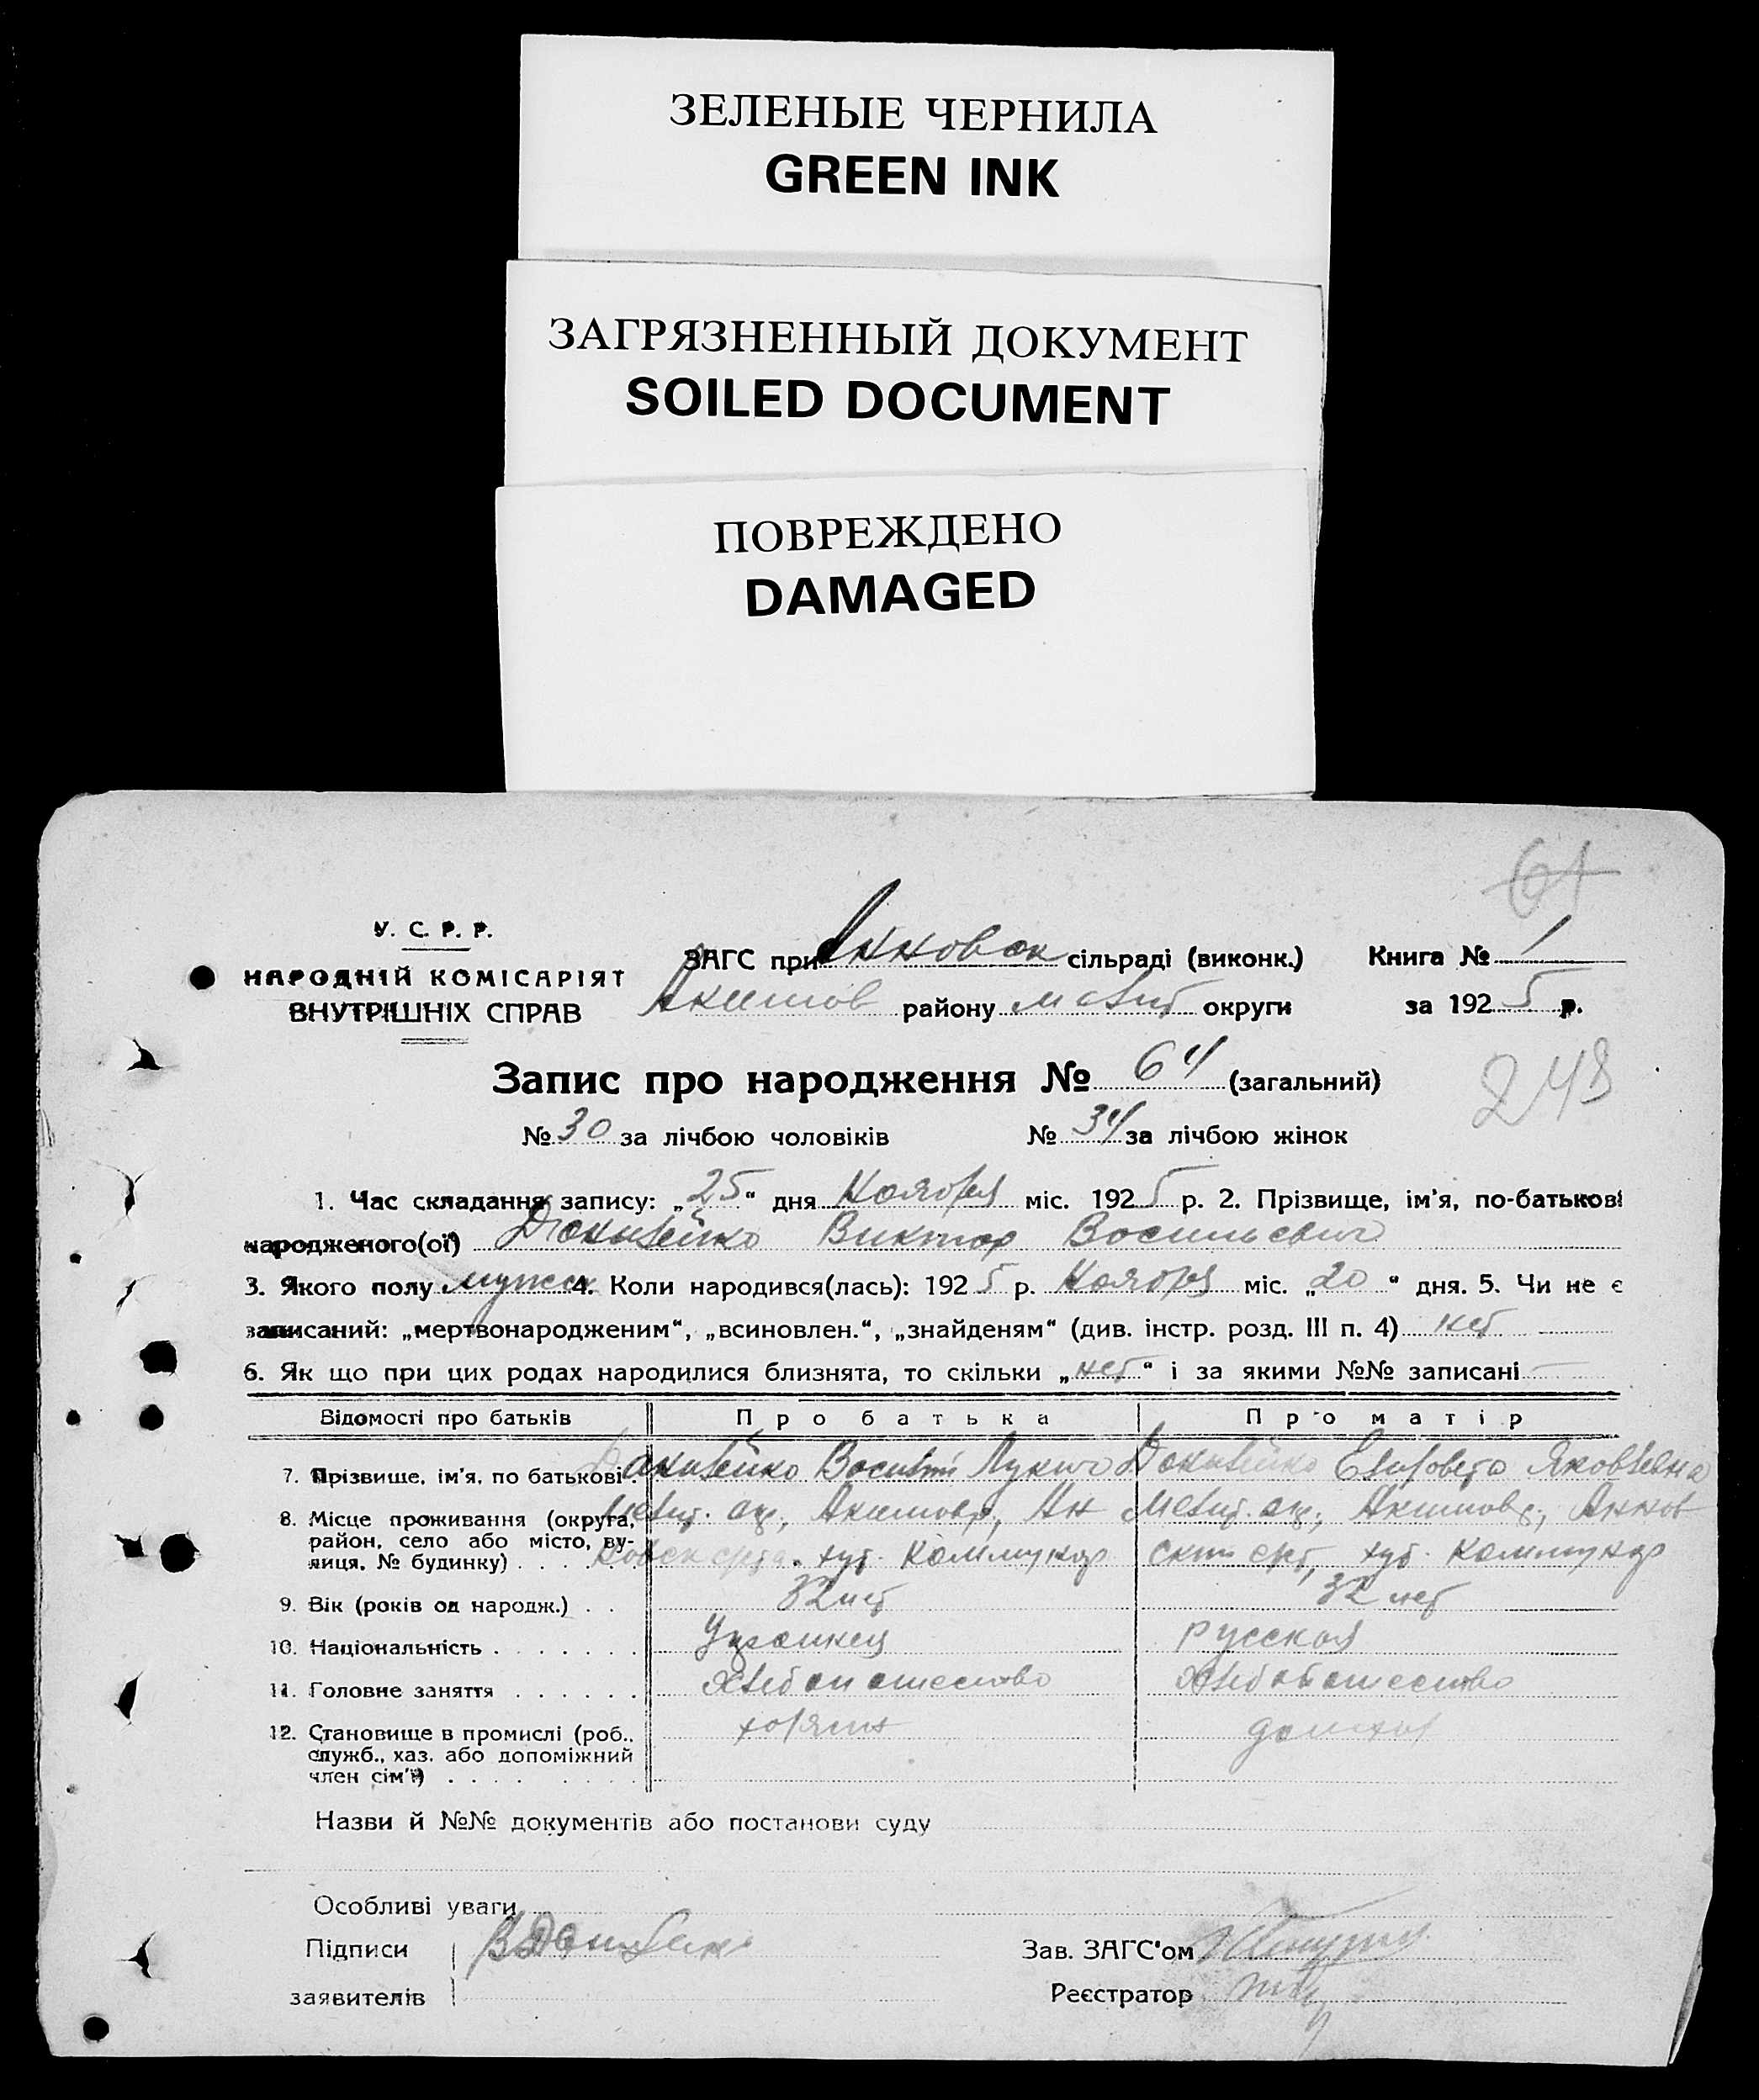 ЗЕЛЕНЫЕ ЧЕРНИЛА
GREEN INK
ЗАГРЯЗНЕННЫЙ ДОКУМЕНТ
SOILED DOCUMENT
ПОВРЕЖДЕНО
DAMAGED
61
У. С. Р. Р.
НАРОДНІЙ КОМІСАРІЯТ
ВНУТРІШНІХ СПРАВ
ЗАГС при Анновск сільраді (виконк.) Книга № 1
Акимов району Мелит округи за 1925 р.
Запис про народження № 64 (загальний)
248
№ 30 за лічбою чоловіків № 34 за лічбою жінок
1. Час складання запису: „25“ дня Ноября міс. 1925 р. 2. Прізвище, ім’я, по-батькові
народженого(ої) Виктор Васильевич
3. Якого полу мужск 4. Коли народився(лась): 1925 р. Ноября міс. „20“ дня. 5. Чи не є
записаний: „мертвонародженим“, „всиновлен.“, „знайденям“ (див. інстр. розд. III п. 4) нет
6. Як що при цих родах народилися близнята, то скільки „нет“ і за якими №№ записані —
Відомості про батьків Про батька Про матір
7. Прізвище, ім’я, по батькові Василий Лукич Елизовета Яковлевна
8. Місце проживання (округа, район, село або місто, вулиця, № будинку) . . . Мелит. ок., Акимовр, Ан Мелит. ок., Акимовр, Аннов
новск срта. хут. Коммунар ский срт, хут. Коммунар
9. Вік (років од народж.) . . 32 лет 32 лет
10. Національність . . . . . . . Украинец Русская
11. Головне заняття . . . . . . Хлебопашество Хлебопашество
12. Становище в промислі (роб., служб., хаз. або допоміжний член сім’ї) . . . . хозяин домхоз
Назви й №№ документів або постанови суду
Особливі уваги
Підписи Зав. ЗАГС’ом
заявителів Реєстратор